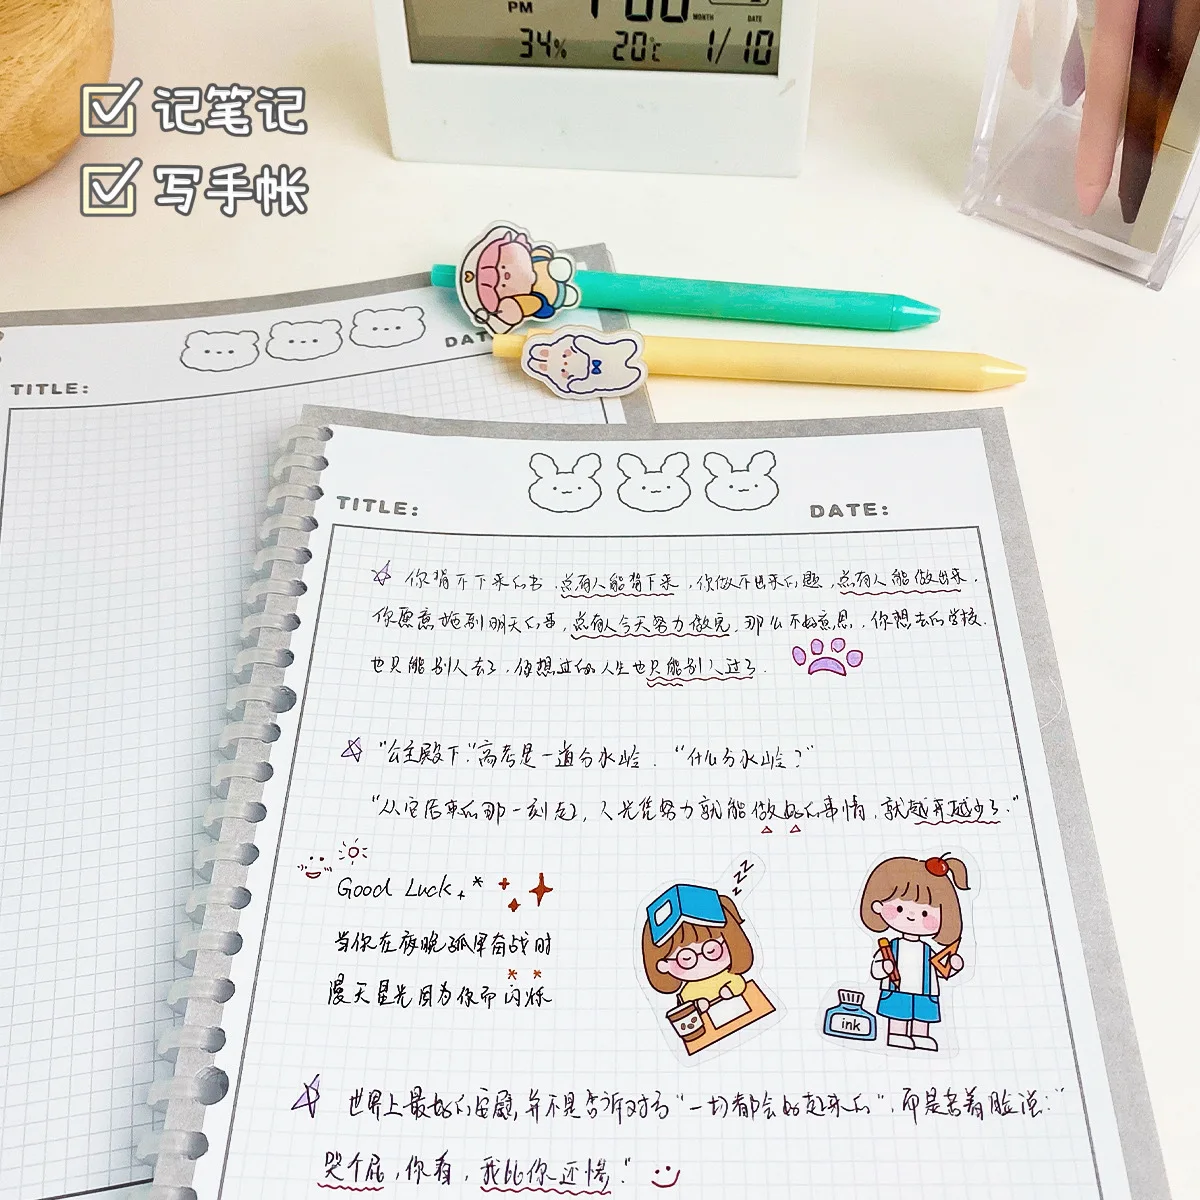 PM
MONTH
DATE
34% 20℃ 1/10
记笔记
写手帐
TITLE:
TITLE: DATE:
你背不下来的书，总有人能背下来，你做不出来的题，总有人能做出来，
你愿意拖到明天的事，总有人今天努力做完，那么不好意思，你想去的学校，
也只能别人去了，你想过的人生也只能别人过了．
"公主殿下："高考是一道分水岭．"什么分水岭？"
"从它结束的那一刻起，人光凭努力就能做好的事情，就越来越少了．"
Good Luck
zzz
当你在夜晚孤军奋战时
漫天星光因为你而闪烁
ink
世界上最好的安慰，并不是告诉对方"一切都会好起来的"，而是苦着脸说："
哭个屁，你看，我比你还惨．"